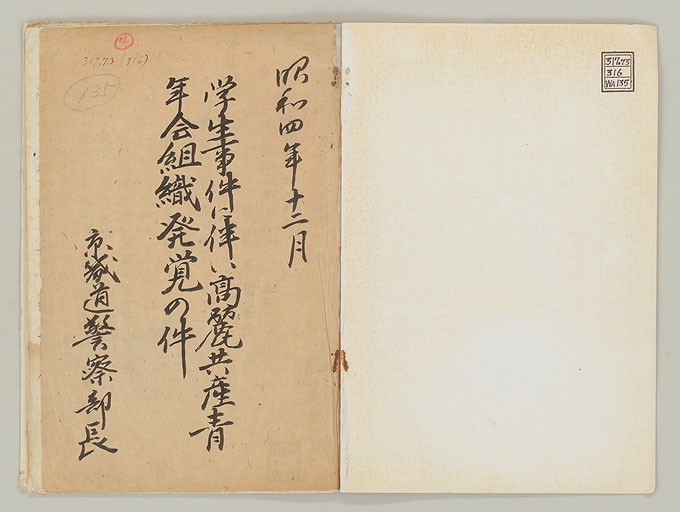 昭和四年十二月
学生事件に伴い高麗共産青
年会組織発覚の件
京城道警察部長
317.73 (316)
135
317.73
316
WA135